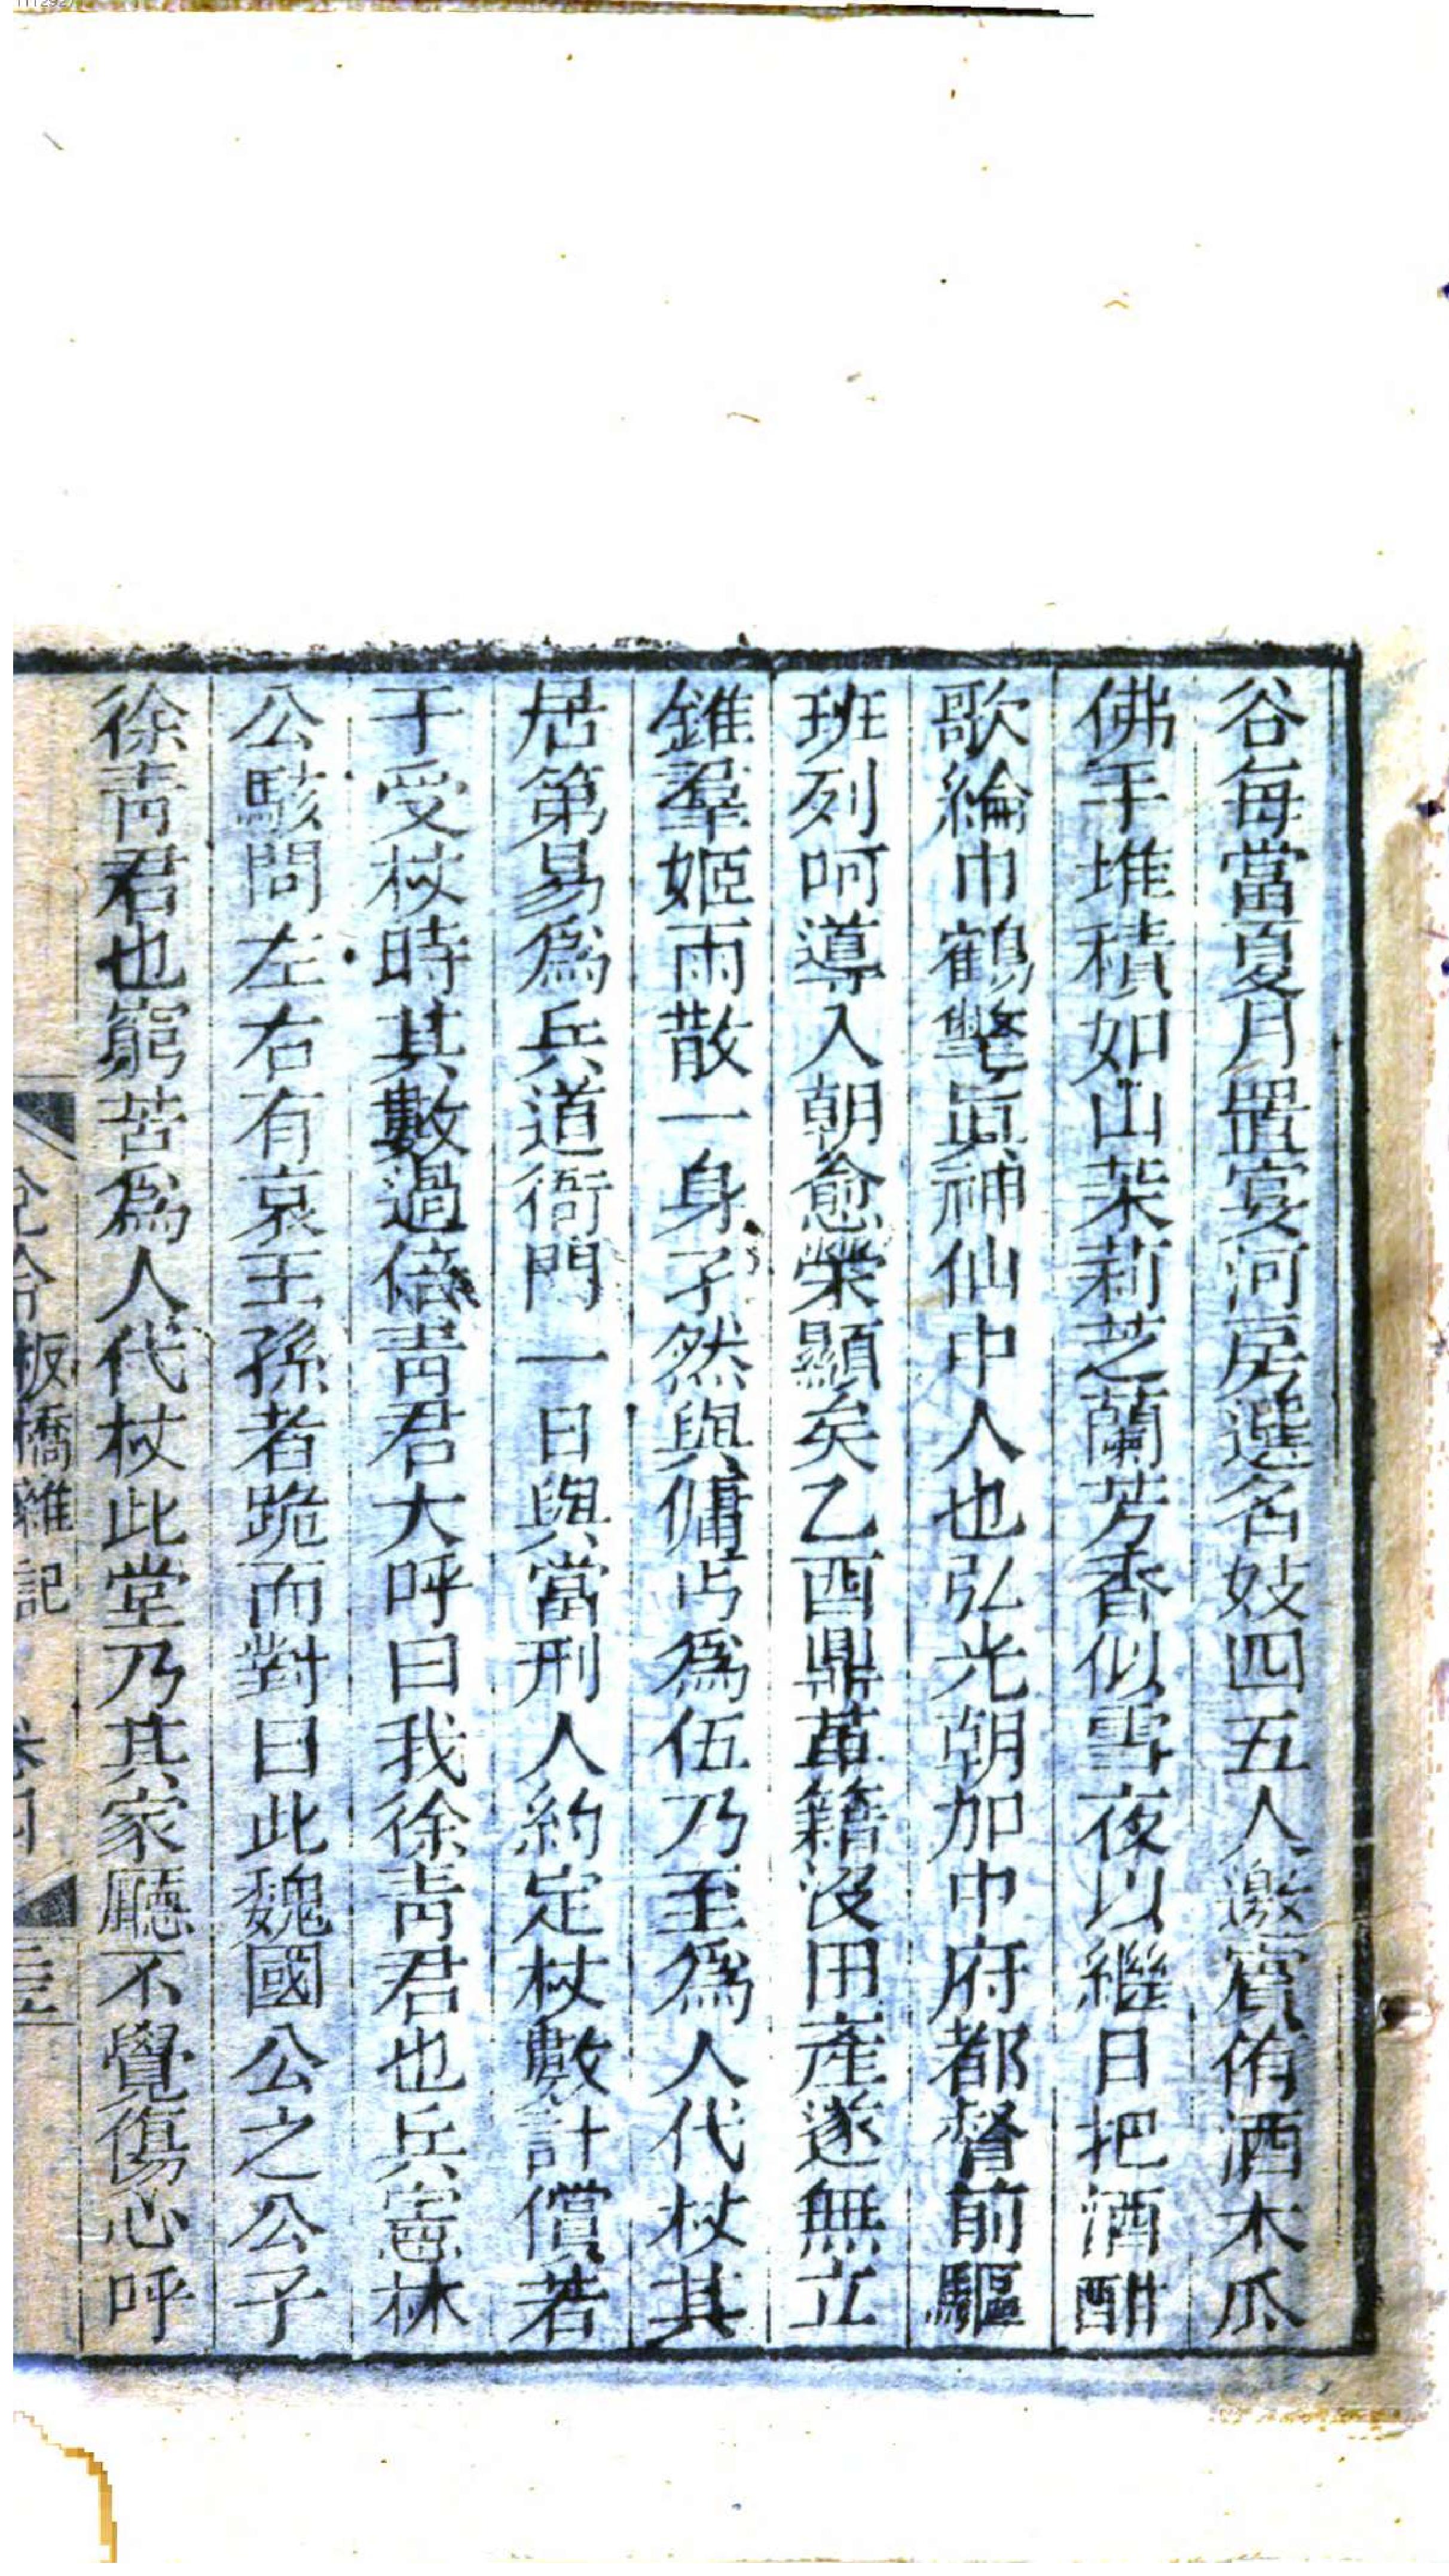 谷每當夏月置宴河房選名妓四五人邀賓侑酒木瓜
佛手堆積如山茉莉芝蘭芳香似雪夜以繼日把酒酣
歌綸巾鶴氅眞神仙中人也弘光朝加中府都督前驅
班列呵導入朝愈榮顯矣乙酉鼎革籍没田產遂無立
錐羣姬雨散一身孑然與傭丐爲伍乃至爲人代杖其
居第易爲兵道衙門一日與當刑人約定杖數計償若
干受杖時其數過倍靑君大呼曰我徐靑君也兵憲林
公駭問左右有哀王孫者跪而對曰此魏國公之公子
徐靑君也窮苦爲人代杖此堂乃其家廳不覺傷心呼
說鈴 板橋雜記 卷四